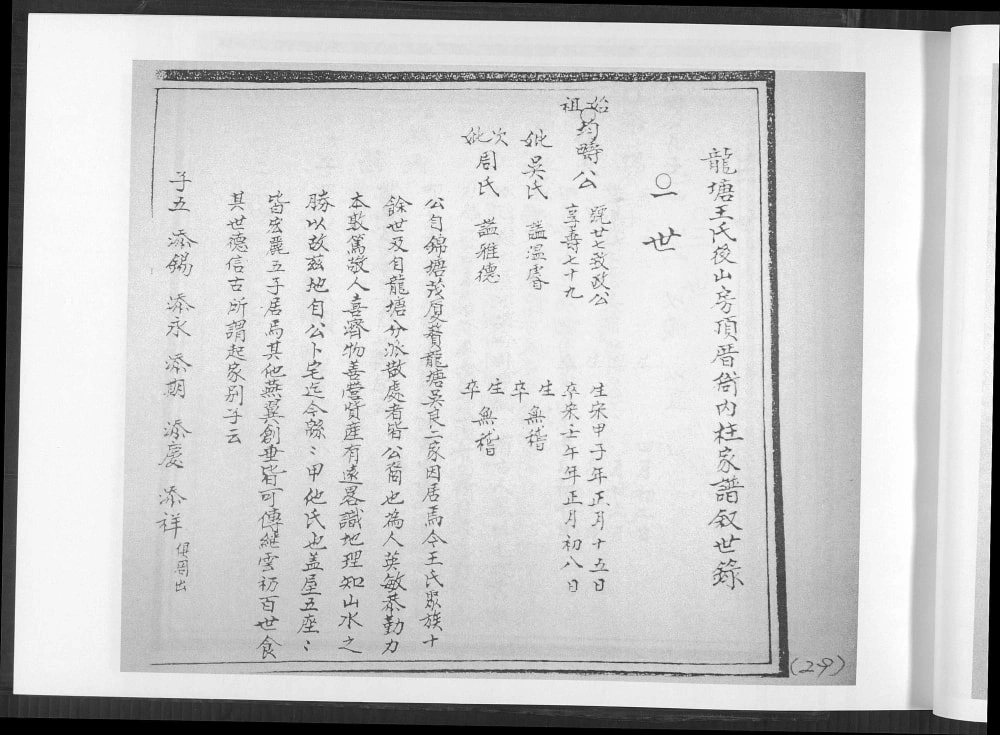 龍塘王氏後山房頂厝衙內柱家譜叙世錄
○一世
始祖 均疇公 號廿七致政公 享壽七十九 生宋甲子年正月十五日 卒宋壬午年正月初八日
妣吳氏 謚溫睿 生卒無稽
次妣周氏 謚雅德 生卒無稽
公自錦塘茂厦贅龍塘吳良二家因居焉今王氏眾族十
餘世及自龍塘分派散處者皆公裔也為人英敏恭勤力
本敦篤敬人喜濟物善營貲產有遠畧識地理知山水之
勝以故茲地自公卜宅迄今繇〻甲他氏也盖屋五座〻
皆宏麗五子居焉其他燕翼創垂皆可傳繼雲礽百世食
其世德信古所謂起家别子云
子五 添錫 添永 添期 添慶 添祥 俱周出
(2-9)